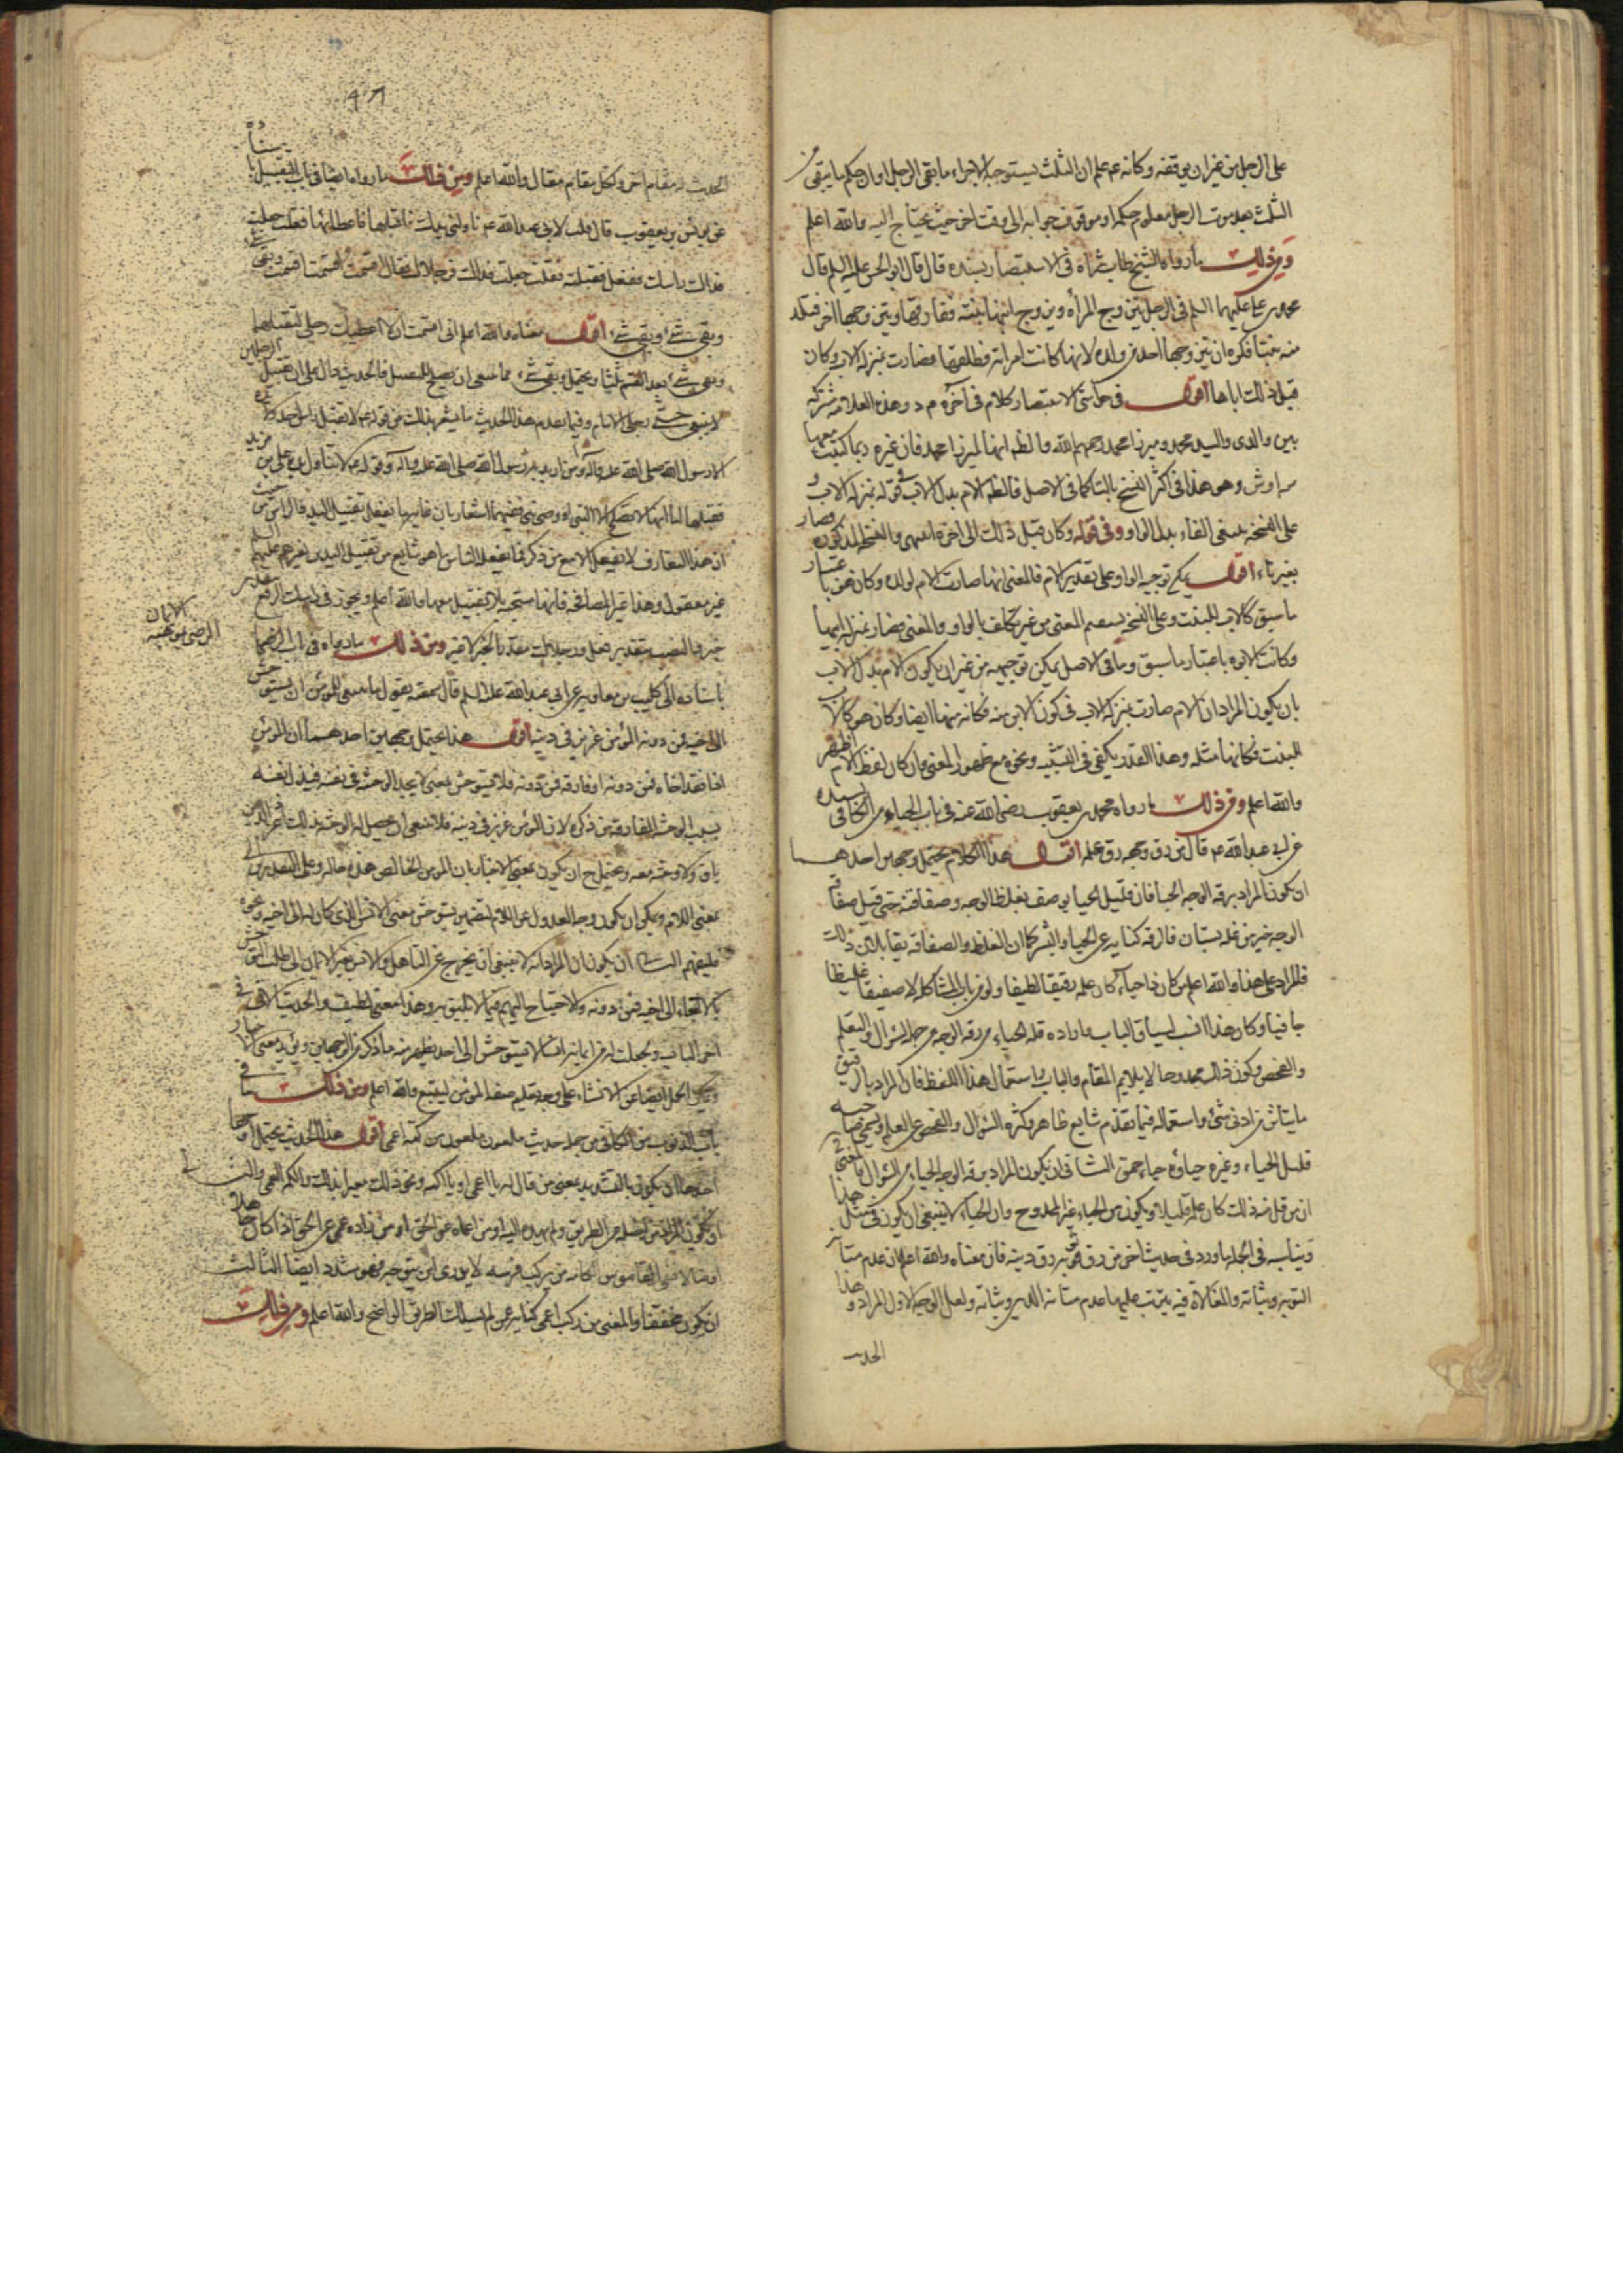 على الرجل من غير ان يوقفه وكانه عم علم ان الثلث يستوجبه الاجراء ما بقى الرجل او ان حكم ما يبقى من
الثلث بعد موت الرجل معلوم حكمه او موقوف جوابه الى وقت اخر حيث يحتاج اليه والله اعلم
ومن ذلك ما رواه الشيخ طاب ثراه فى الاستبصار بسنده قال قال ابو الحسن عليه السلم قال
محمد بن على عليهما السلم فى الرجل يتزوج المرأه ويزوج ابنها ابنته ففارقها ويتزوجها اخر فتلد
منه بنتا فكره ان يتزوجها احد من ولده لانها كانت امراته فطلقها فصارت بمنزله الاب وكان
قبل ذلك ابا لها اقول فى حواشى الاستبصار كلام فى آخره م د وهذه العلامه مشتركه
بين والدى والسيد محمد وميرزا محمد رحمهم الله والظ انها لميرزا محمد فان غيره ربما كتبت معها
وهو هذا فى اكثر النسخ بالتا كما فى الاصل فالظ الام بدل الاب فى قوله بمنزله الاب و
على النسخه بسقى الفاء بدل الواو وفى قوله وكان قبل ذلك الى اخره انتهى والنسخه المذكوره فصار
بغير تاء اقول يمكن توجيه الواو وعلى تقدير الام فالمعنى انها صارت كالام لولده وكان هو باعتبار
ما سبق كالاب للبنت وعلى النسخه يستقيم المعنى من غير تكلف بالواو والمعنى فصار بمنزله ابيها
وكانت الابوه باعتبار ما سبق وما فى الاصل يمكن توجيهه من غير ان يكون الام بدل الاب
بان يكون المراد ان الام صارت بمنزله الاب فى كون الابن منه فكانه منها ايضا وكان هو كالاب
للبنت فكانها مثله وهذا القدر يكفى فى التشبيه ونحوه مع ظهور المعنى وان كان لفظ الام اظهر
والله اعلم ومن ذلك ما رواه محمد بن يعقوب رضى الله عنه فى باب الحياء من الكافى بسنده
عن ابى عبد الله عم قال من رق وجهه رق علمه اقول هذا الكلام يحتمل وجهين احدهما
ان يكون المراد برقه الوجه الحيا فان قليل الحيا يوصف بغلظ الوجه وصفاقته حتى قيل صفاقه
الوجه خير من غله بستان فالرقه كنايه عن الحيا والبشر كما ان الغلظ والصفاقه يقابلان ذلك
فالمراد على هذا والله اعلم من كان ذا حياء كان علمه رقيقا لطيفا ولو من باب المشاكله لا صفيقا غليظا
جافيا وكان هذا انسب لسياق الباب وارادة قله الحياء من رقه الوجه من جهه السؤال والتعلم
والفحص وكون ذلك ممدوحا لا يلايم المقام والباب واستعمال هذا اللفظ فان المراد بالرقيق
ما يتاثر من ادنى شئ واستعماله فيما تقدم شايع ظاهر وكثره السؤال والفحص عن العلم لا يسمى صاحبه
قليل الحياء وغيره حياؤه حياء حمق الثانى ان يكون المراد برقه الوجه الحياء من السؤال والمعنى
ان من قل منه ذلك كان علمه قليلا ويكون من الحياء غير الممدوح وان الحياء لا ينبغى ان يكون فى مثل هذا
ويناسبه فى الجمله ما ورد فى حديث اخر من رق ثوبه رق دينه فان معناه والله اعلم ان عدم متانه
الثوب وثباته والمغالاة فيه يترتب عليها عدم متانه الدين وثباته ولعل الوجه الاول المراد وهذا
الحديث
الحديث له مقام اخر ولكل مقام مقال والله اعلم ومن ذلك ما رواه ايضا فى باب التقبيل باسناده
عن يونس بن يعقوب قال قلت لابى عبد الله عم ناولنى يدك اقبلها فاعطانيها فقلت جعلت
فداك راسك ففعل فقبلته فقلت جعلت فداك فرجلاك فقال اقسمت اقسمت اقسمت وبقى شئ
وبقى شئ وبقى شئ اقول معناه والله اعلم انى اقسمت ان لا اعطيك رجلى لتقبلها
وبقى شئ بعد القسم ثلثا ويحتمل وبقى شئ مما ينبغى ان يصلح للتقبيل فالحديث دال على ان تقبيل الرجلين
لا ينبغى حتى رجل الامام وفيما بعد من هذا الحديث ما يشعر بذلك من قوله عم لا تقبل راس احد ولا يده
الا رسول الله صلى الله عليه وآله او من اريد به رسول الله صلى الله عليه وآله وقوله عم لا تناول يد على بن مزيد
فقبلها اما انها لا تصلح الا لنبى او وصى نبى ففيهما اشعار بان
ان هذا التعارف لا يفعل الا مع من ذكر فما يفعل الناس اهو شايع من تقبيل اليد من غيرهم عليهم السلم
غير معقول وهذا غير المصافحه فانها مستحبه بلا تقبيل معها والله اعلم ويجوز فى رجلاك الرفع
خبر والنصب بتقدير هل ورجلاك مقدر الخبر لا فيه ومن ذلك ما رواه فى باب الرضا بموهبه الايمان
باسناده الى كليب بن معاويه عن ابى عبد الله عليه السلم قال سمعته يقول ما ينبغى للمؤمن ان يستوحش
الى اخيه فمن دونه المؤمن عزيز فى دينه اقول هذا يحتمل وجهين احدهما ان المؤمن
اذا فقد اخاه فمن دونه او فارقه فمن دونه فلا يستوحش بمعنى لا يجد الوحشه فى نفسه فيذل نفسه
بسبب الوحشه لمفارقه من ذكر لان المؤمن عزيز فى دينه فلا ينبغى ان يحصل له الوحشه بذلك
باق ولا وحشه معه ويحتمل ح ان يكون بمعنى الاخبار بان المؤمن الخالص هذه حاله وعلى التقديرين الى
بمعنى اللام ويمكن ان يكون وجه العدول عن اللام لتضمين يستوحش معنى الانس الذى كان له الى اخيه ونحوه
فليفهم الثانى ان يكون ان المراد انه لا ينبغى ان يخرج عن التاهل والانس بغير الايمان الى طلب التوحش
بالالتجاء الى اخيه فمن دونه والاحتياج اليهم فيما لا يليق به وهذا معنى لطيف والحديث الاتى فى
اخر الباب وجعلت له من ايمانه انسا لا يستوحش الى احد يظهر منه ما ذكر من الوجهين ويؤيد معنى الاخبار
ويمكن الحمل ايضا على الانشاء على وجه تعليم صفه المؤمن ليتبع والله اعلم ومن ذلك ما فى
باب الذنوب من الكافى من جمله حديث ملعون ملعون من كمه اعمى اقول هذا الحديث يحتمل اوجها
احدها ان يكون بالتشديد بمعنى من قال له يا اعمى او يا اكمه ونحو ذلك معيرا بذلك والكمه العمى والثانى
ان يكون المراد من اضله عن الطريق ولم يهده اليه او من اعماه عن الحق او من زاده عمى عن الحق اذا كان جاهلا
وفى القاموس الكامه من يركب فرسه لا يدرى اين يتوجه فهو مشدد ايضا الثالث
ان يكون مخففا والمعنى من ركب اعمى كنايه عن لم يسلك الطريق الواضح والله اعلم ومن ذلك